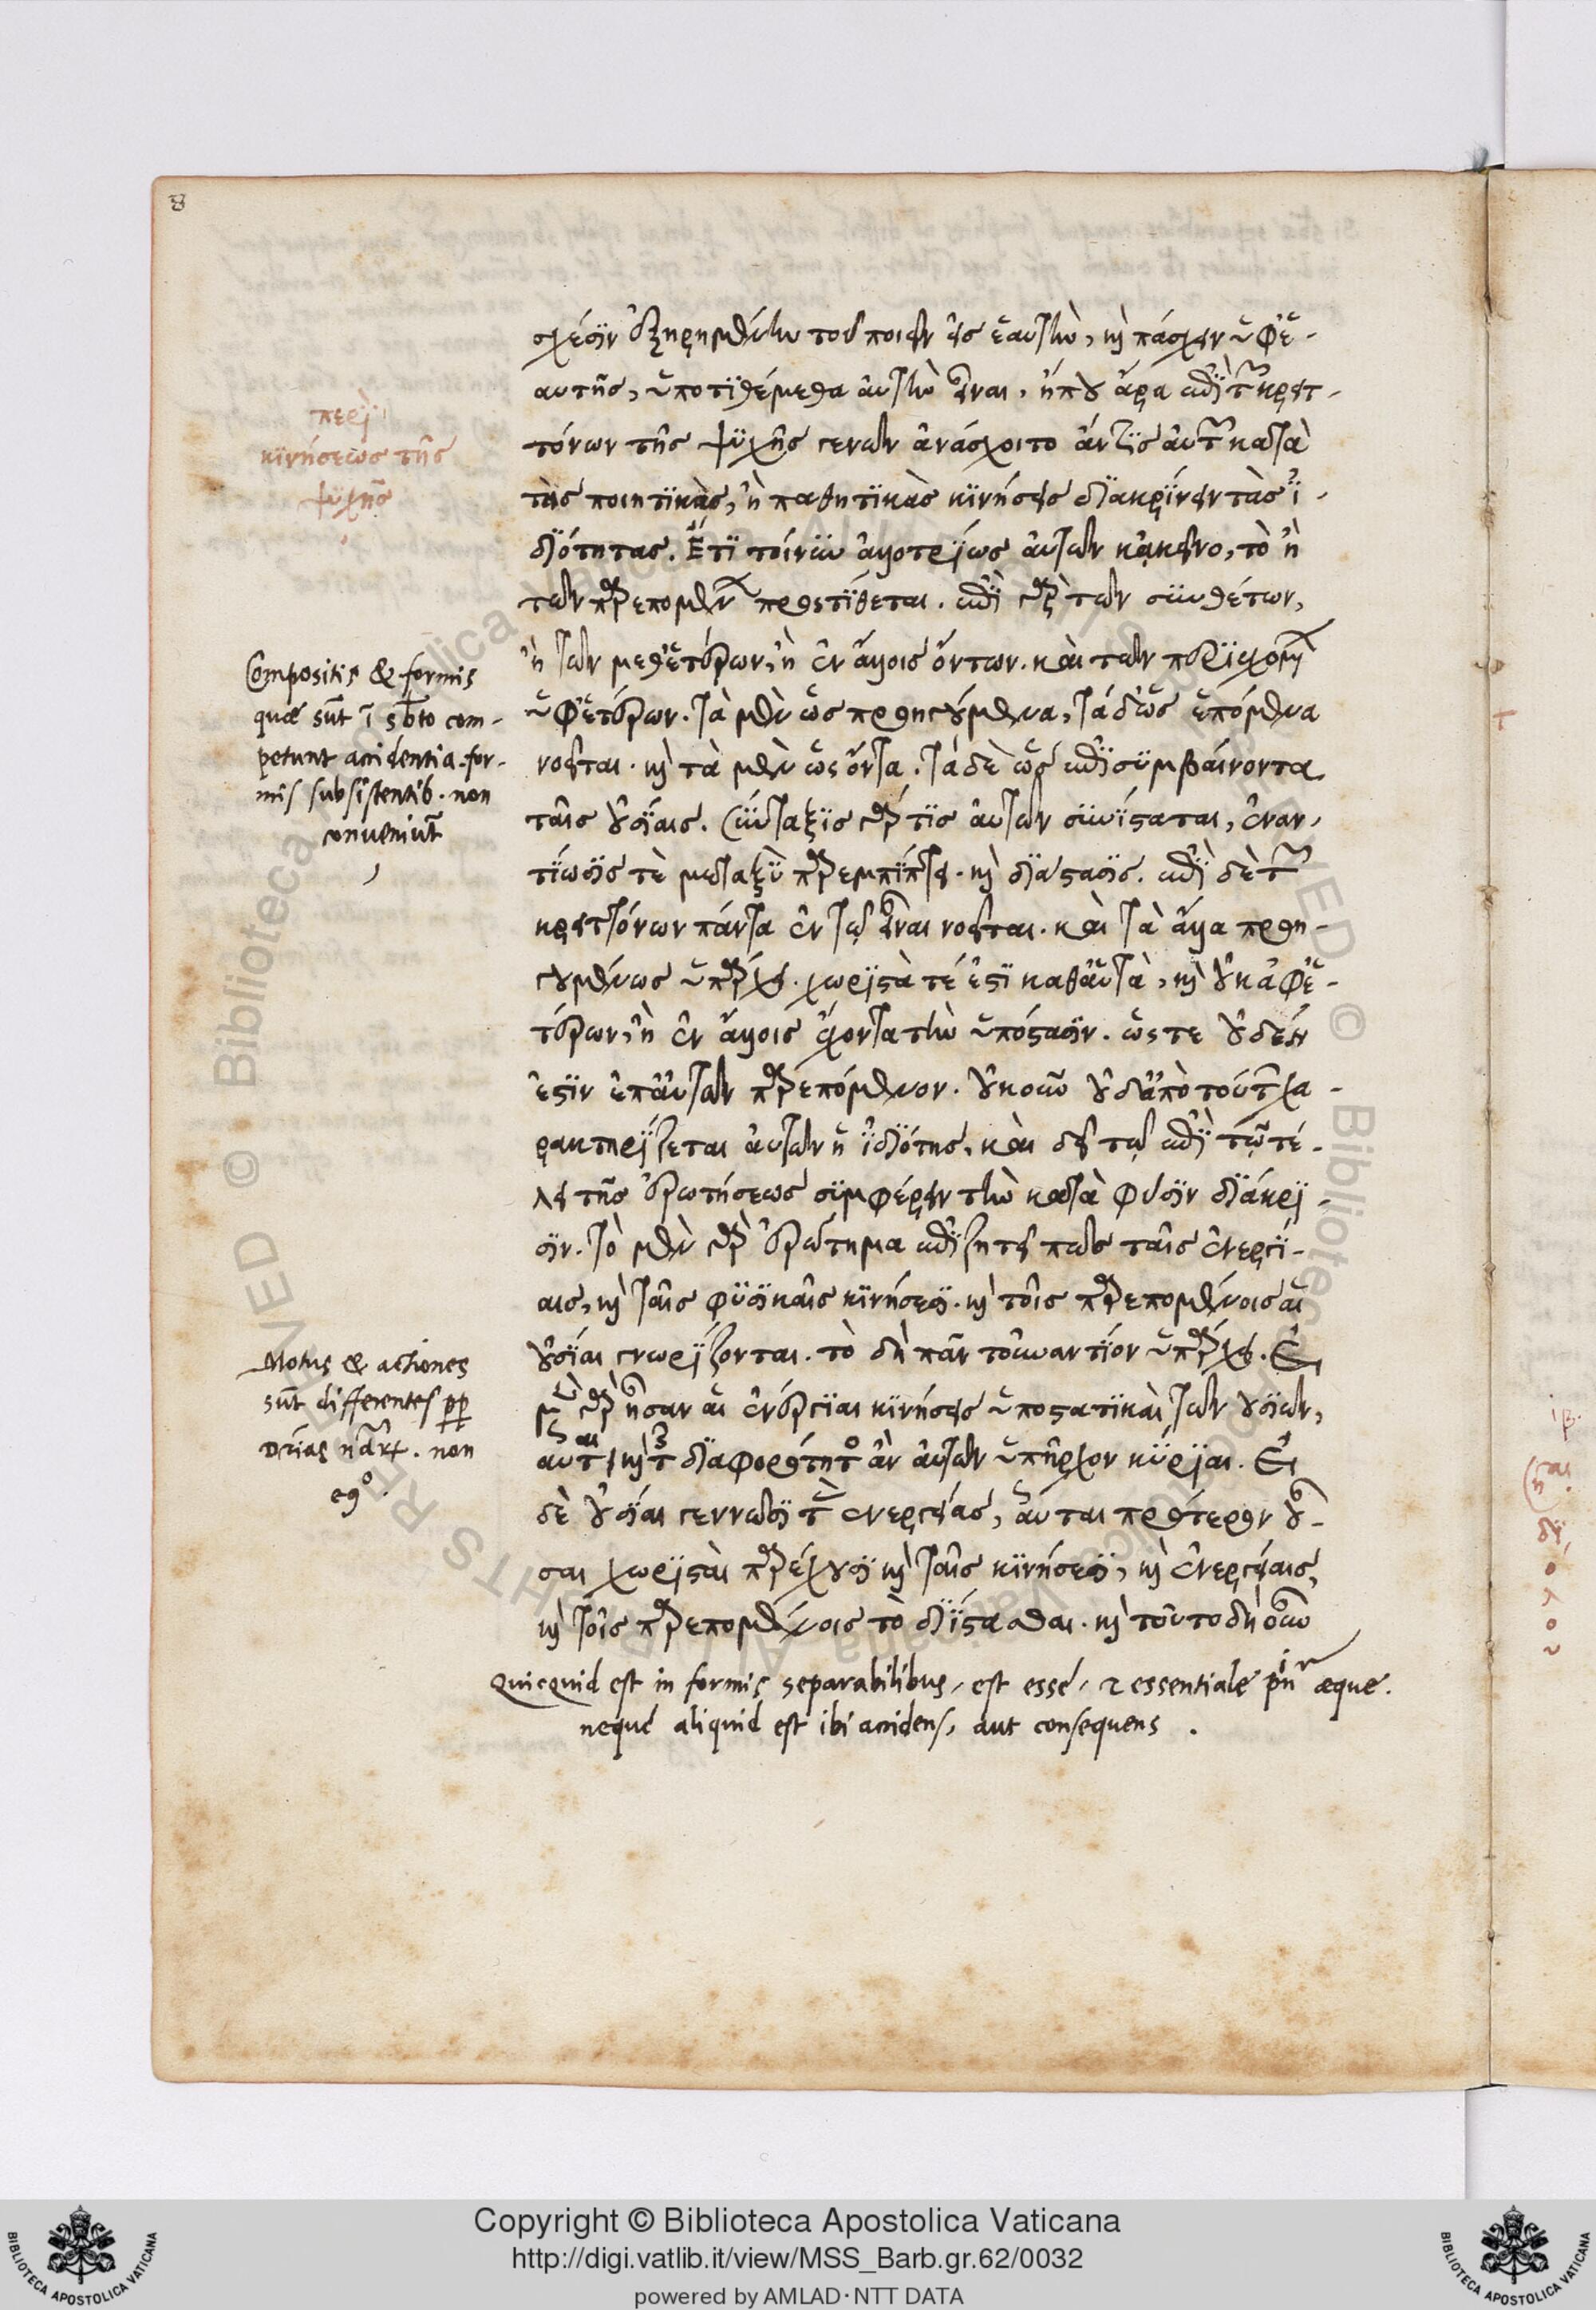 8
σχέσιν ἐξῃρημένην τοῦ ποιεῖν εἰς ἑαυτὴν, καὶ πάσχειν ὑφ' ἑ-
αυτῆς, ὑποτιθέμεθα αὐτὴν εἶναι, ἤπου ἄρα ἐπὶ τῶν κρειτ-
τόνων τῆς ψυχῆς γενῶν ἀνάσχοιτο ἄν τις αὐτῶν κατὰ
τὰς ποιητικὰς, ἢ παθητικὰς κινήσεις διακρίνειν τὰς ἰ-
διότητας. Ἔτι τοίνυν ἀλλοτρίως αὐτῶν κἀκεῖνο, τὸ ἢ
τῶν παρεπομένων προστίθεται. ἐπὶ γὰρ τῶν συνθέτων,
ἢ τῶν μεθ' ἑτέρων, ἢ ἐν ἄλλοις ὄντων. καὶ τῶν περιεχομένων
ὑφ' ἑτέρων. τὰ μὲν ὡς προηγούμενα, τὰ δ' ὡς ἑπόμενα
νοεῖται. καὶ τὰ μὲν ὡς ὄντα. τὰ δὲ ὡς ἐπισυμβαίνοντα
ταῖς οὐσίαις. Σύνταξις γάρ τις αὐτῶν συνίσταται, ἐναν-
τίωσίς τὲ μεταξὺ παρεμπίπτει. καὶ διάστασις. ἐπὶ δὲ τῶν
κρειττόνων πάντα ἐν τῷ εἶναι νοεῖται. καὶ τὰ ὅλα προη-
γουμένως ὑπάρχει. χωριστὰ τέ ἐστι καθ' αὑτὰ, καὶ οὐκ ἀφ' ἑ-
τέρων, ἢ ἐν ἄλλοις ἔχοντα τὴν ὑπόστασιν. ὥστε οὐδέν
ἐστιν ἐπ' αὐτῶν παρεπόμενον. οὔκουν οὐδ' ἀπὸ τούτων χα-
ρακτηρίζεται αὐτῶν ἡ ἰδιότης, καὶ δεῖ τῷ ἐπὶ τῷ τέ-
λει τῆς ἐρωτήσεως συμφέρειν τὴν κατὰ φύσιν διάκρι-
σιν. τὸ μὲν γὰρ ἐρώτημα ἐπιζητεῖ πῶς ταῖς ἐνεργεί-
αις, καὶ ταῖς φυσικαῖς κινήσεσι. καὶ τοῖς παρεπομένοις αἱ
οὐσίαι γνωρίζονται. τὸ δὴ πᾶν τοὐναντίον ὑπάρχει. Εἰ
μὲν γὰρ ἦσαν αἱ ἐνέργειαι κινήσεις ὑποστατικαὶ τῶν οὐσιῶν,
αὗται καὶ τῆς διαφορότητος ἂν αὐτῶν ὑπῆρχον κύριαι. Εἰ
δὲ οὐσίαι γεννῶσι τὰς ἐνεργείας, αὗται πρότερον οὖ-
σαι χωρισταὶ παρέχουσι καὶ ταῖς κινήσεσι, καὶ ἐνεργείαις,
καὶ τοῖς παρεπομένοις τὸ διίστασθαι. καὶ τοῦτο δὴ οὖν
περὶ
κινήσεως τῆς
ψυχῆς
Compositis & formis
quae sūt ī sbto com-
petunt accidentia. for-
mis subsistentib. non
conueniūt
Motus & actiones
sūt differentes pp
non
Quicquid est in formis separabilibus, est esse, & essentiale æque.
neque aliquid est ibi accidens, aut consequens.
Copyright © Biblioteca Apostolica Vaticana
http://digi.vatlib.it/view/MSS_Barb.gr.62/0032
powered by AMLAD·NTT DATA
BIBLIOTECA APOSTOLICA VATICANA
BIBLIOTECA APOSTOLICA VATICANA